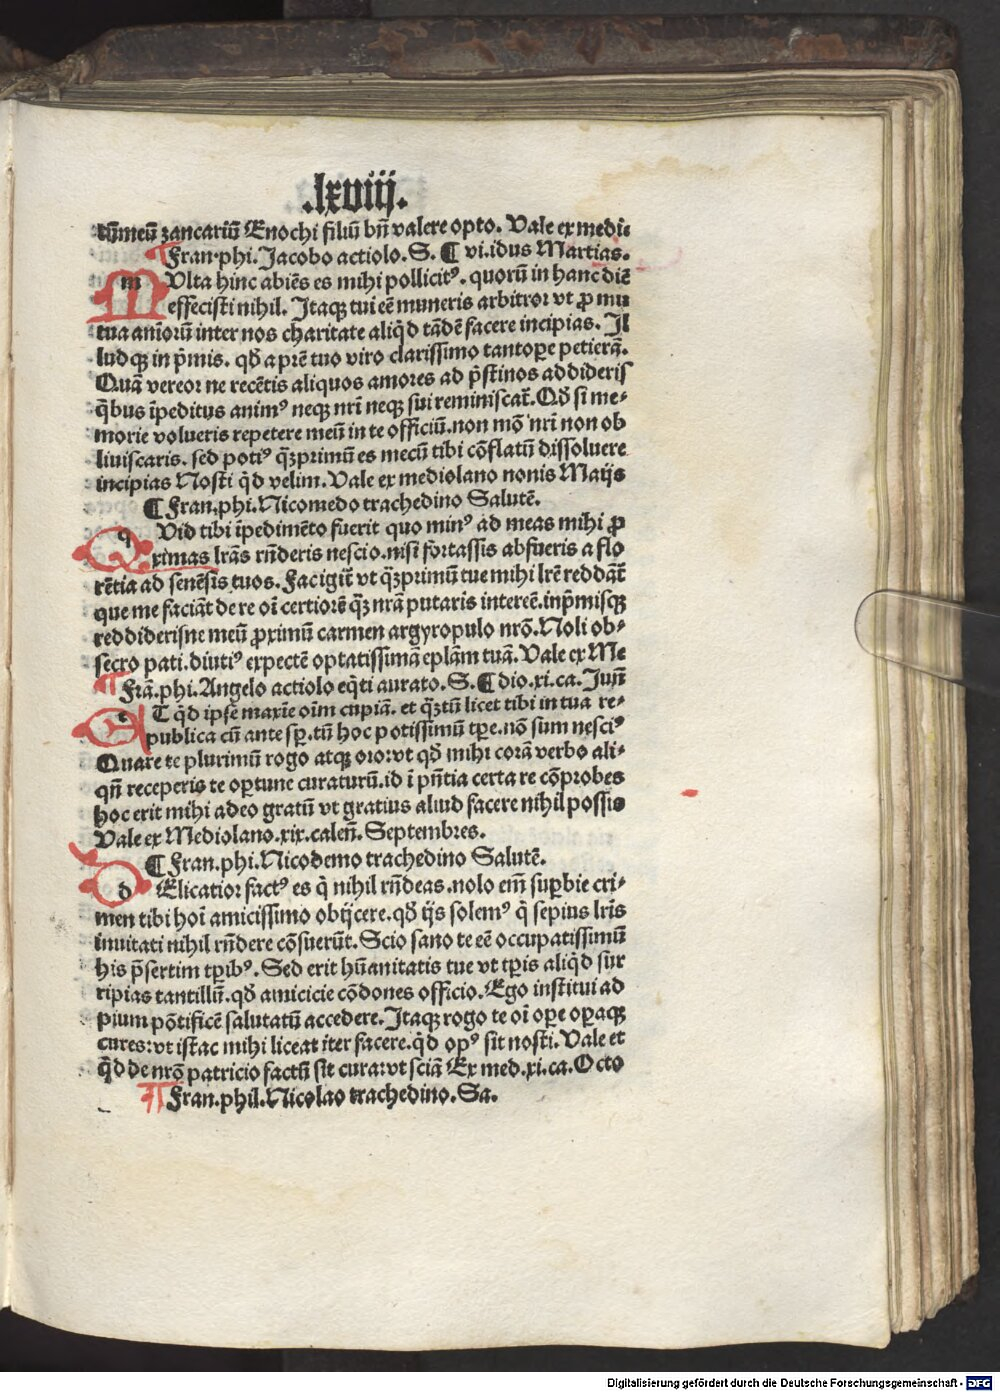 .lxviij.
tũmeũ zancariũ Enochi filiũ bñ valere opto. Vale ex medi⸗
Fran.phi. Jacobo actiolo. S. ¶ vi.idus Martias.
m Vlta hinc abiẽs es mihi pollicitꝰ. quorũ in hanc diẽ
effecisti nihil. Itaqꝫ tui eẽ muneris arbitror vt ꝓ mu
tua animorũ inter nos charitate aliqd̄ tãdẽ facere incipias. Il
lud qꝫ in p̃mis. qđ a prẽ tuo viro clarissimo tantoꝑe petierã.
Quã vereor ne recẽtis aliquos amores ad p̃stinos addideris
q̃bus ĩpeditus animꝰ neqꝫ nrĩ neqꝫ sui reminiscat̃. Qđ si me⸗
morie volueris repetere meũ in te officiũ.non mõ nrĩ non ob
liuiscaris. sed potiꝰ q̃ꝫprimũ es mecũ tibi cõflatũ dissoluere
incipias Nosti q̃d velim. Vale ex mediolano nonis Maijs
¶ Fran.phi. Nicomedo trachedino Salutẽ.
q Vid tibi ĩpedimẽto fuerit quo minꝰ ad meas mihi ꝓ
ximas lrãs rñderis nescio.nisi fortassis abfueris a flo
rẽtia ad senẽsis tuos. Fac igit̃ vt q̃ꝫprimũ tue mihi lrẽ reddãt̃
que me faciãt de re oĩ certiorẽ q̃ꝫ nrã putaris intereẽ.inp̃misqꝫ
reddiderisne meũ ꝓximũ carmen argyropulo nrõ. Noli ob⸗
secro pati. diutiꝰ expectẽ optatissimã eplãm tuã. Vale ex Me
Frã.phi. Angelo actiolo eq̃ti aurato. S. ¶ dio.xi.ca. Juñ
e T q̃d ipse maxĩe oĩm cupiã. et q̃ꝫtũ licet tibi in tua re⸗
publica cũ ante sꝑ.tũ hoc potissimũ tꝑe.nõ sum nesciꝰ
Quare te plurimũ rogo atqꝫ oro:vt qđ mihi corã verbo ali⸗
qñ receperis te oꝑtune curaturũ.id ĩ pñtia certa re cõprobes
hoc erit mihi adeo gratũ vt gratius aliud facere nihil possis
Vale ex Mediolano.xix.caleñ. Septembres.
¶ Fran.phi. Nicodemo trachedino Salutẽ.
d Elicatior factꝰ es q̃ nihil rñdeas.nolo em̃ suꝑbie cri⸗
men tibi hoĩ amicissimo obijcere.qđ ijs solemꝰ q̃ sepius lrĩs
inuitati nihil rñdere cõsuerũt. Scio sano te eẽ occupatissimũ
his p̃sertim tꝑibꝰ. Sed erit hũanitatis tue vt tꝑis aliq̃d sur
ripias tantillũ.qđ amicicie cõdones officio. Ego institui ad
pium põtificẽ salutatũ accedere. Itaqꝫ rogo te oĩ oꝑe oꝑaqꝫ
cures:vt istac mihi liceat iter facere.q̃d opꝰ sit nosti. Vale et
q̃d de nrõ patricio factũ sit cura:vt sciã Ex med.xi.ca. Octo
Fran.phil. Nicolao trachedino. Sa.
Digitalisierung gefördert durch die Deutsche Forschungsgemeinschaft - DFG